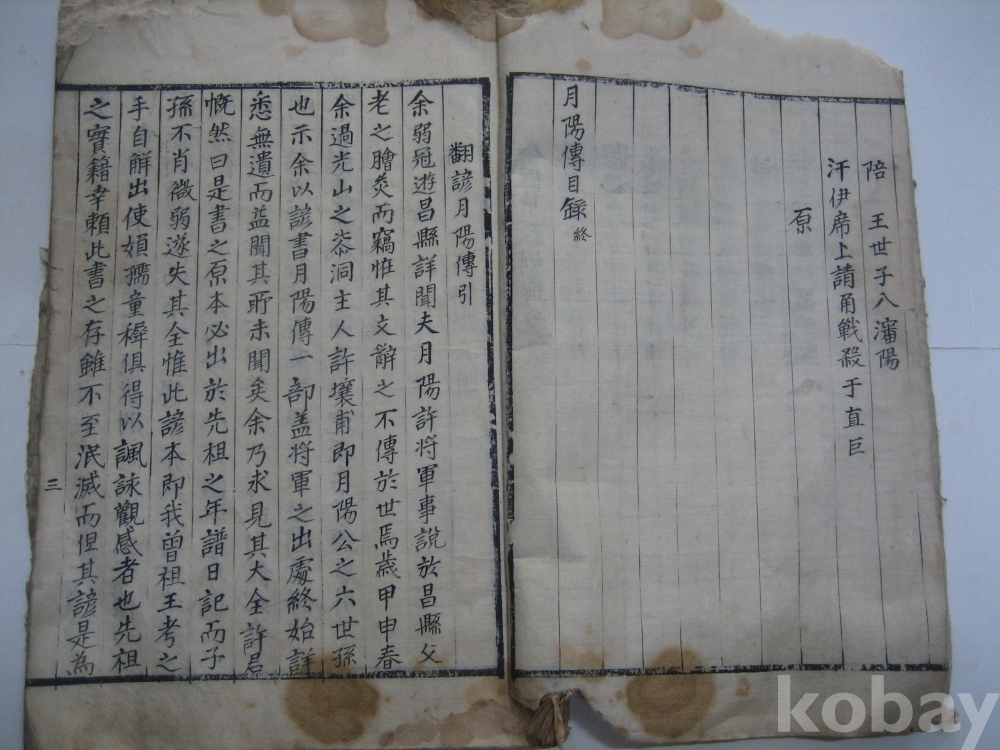 陪 王世子入瀋陽
汗伊席上請甬戰殺于直巨
原
月陽傳目錄終
翻諺月陽傳引
余弱冠遊昌縣詳聞夫月陽許將軍事說於昌縣父
老之膾炙而竊恠其文辭之不傳於世焉歲甲申春
余過光山之恭洞主人許壤甫即月陽公之六世孫
也示余以諺書月陽傳一部盖將軍之出處終始詳
悉無遺而益聞其所未聞矣余乃求見其大全許君
慨然曰是書之原本必出於先祖之年譜日記而子
孫不肖微弱遂失其全惟此諺本即我曾祖王考之
手自解出使婦孺童穉俱得以諷詠觀感者也先祖
之實籍幸賴此書之存雖不至泯滅而但其諺是為
三
kobay